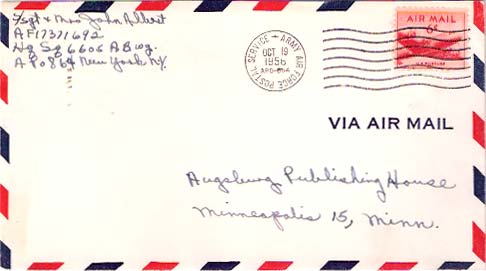 Tsgt & Mrs John Albert
AF17371692
Hq Sq 6606 AB wg.
APO 864 New York NY.
ARMY AIR FORCE POSTAL SERVICE
OCT 19
1956
APO-864
AIR MAIL
6¢
U.S. POSTAGE
VIA AIR MAIL
Augsburg Publishing House
Minneapolis 15, Minn.